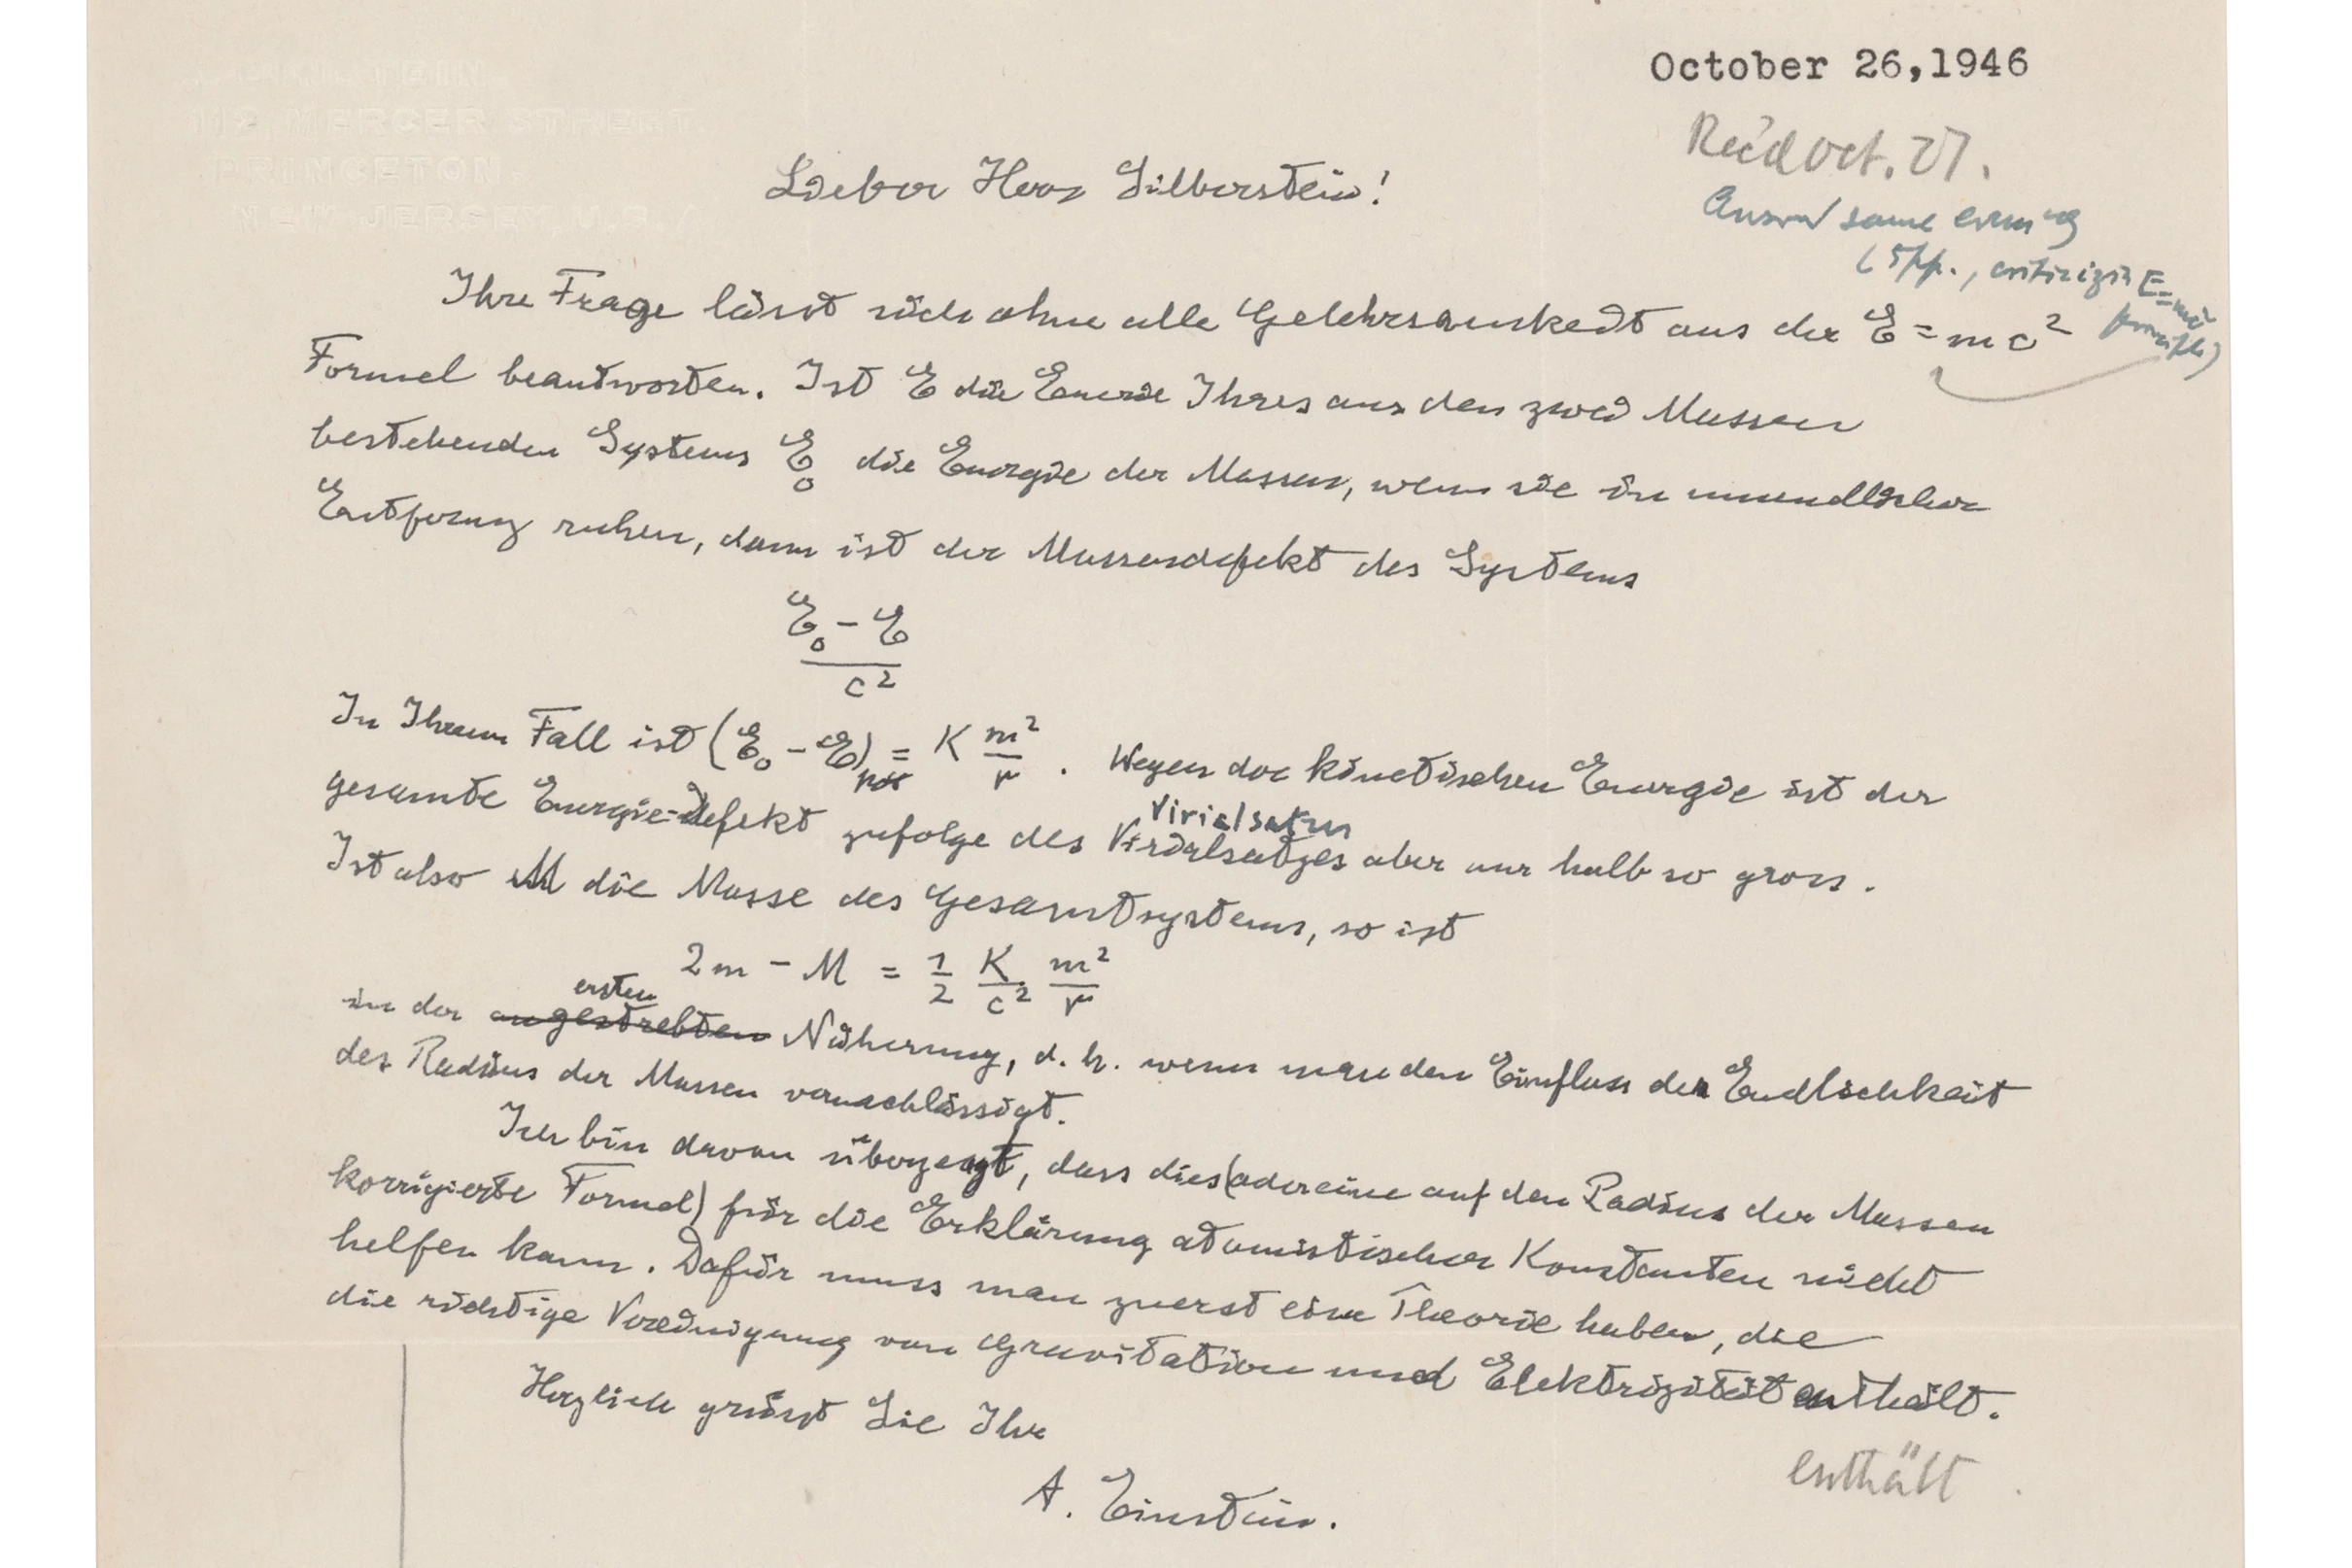 A. EINSTEIN
112, MERCER STREET,
PRINCETON,
NEW JERSEY, U.S.A.
October 26,1946
Rec'd Oct. 27.
Answ same evening
(5pp., criticizing E=mc²
principle)
Lieber Herr Silberstein!
Ihre Frage lässt sich ohne alle Gelehrsamkeit aus der E = mc²
Formel beantworten. Ist E die Energie Ihres aus den zwei Massen
bestehenden Systems E₀ die Energie der Massen, wenn sie in unendlicher
Entfernung ruhen, dann ist der Massendefekt des Systems
E₀ - E
c²
In Ihrem Fall ist (E₀ - E)pot = K m²/r . Wegen der kinetischen Energie ist der
Virialsatzes
gesamte Energie-Defekt zufolge des Virialsatzes aber nur halb so gross.
Ist also M die Masse des Gesamtsystems, so ist
2m - M = 1/2 K/c² m²/r
ersten
in der angestrebten Näherung, d. h. wenn man den Einfluss der Endlichkeit
des Radius der Massen vernachlässigt.
Ich bin davon überzeugt, dass dies (oder eine auf den Radius der Massen
korrigierte Formel) für die Erklärung atomistischer Konstanten nicht
helfen kann. Dafür muss man zuerst eine Theorie haben, die
die richtige Vereinigung von Gravitation und Elektrizität enthält.
enthält
Herzlich grüsst Sie Ihr
A. Einstein.